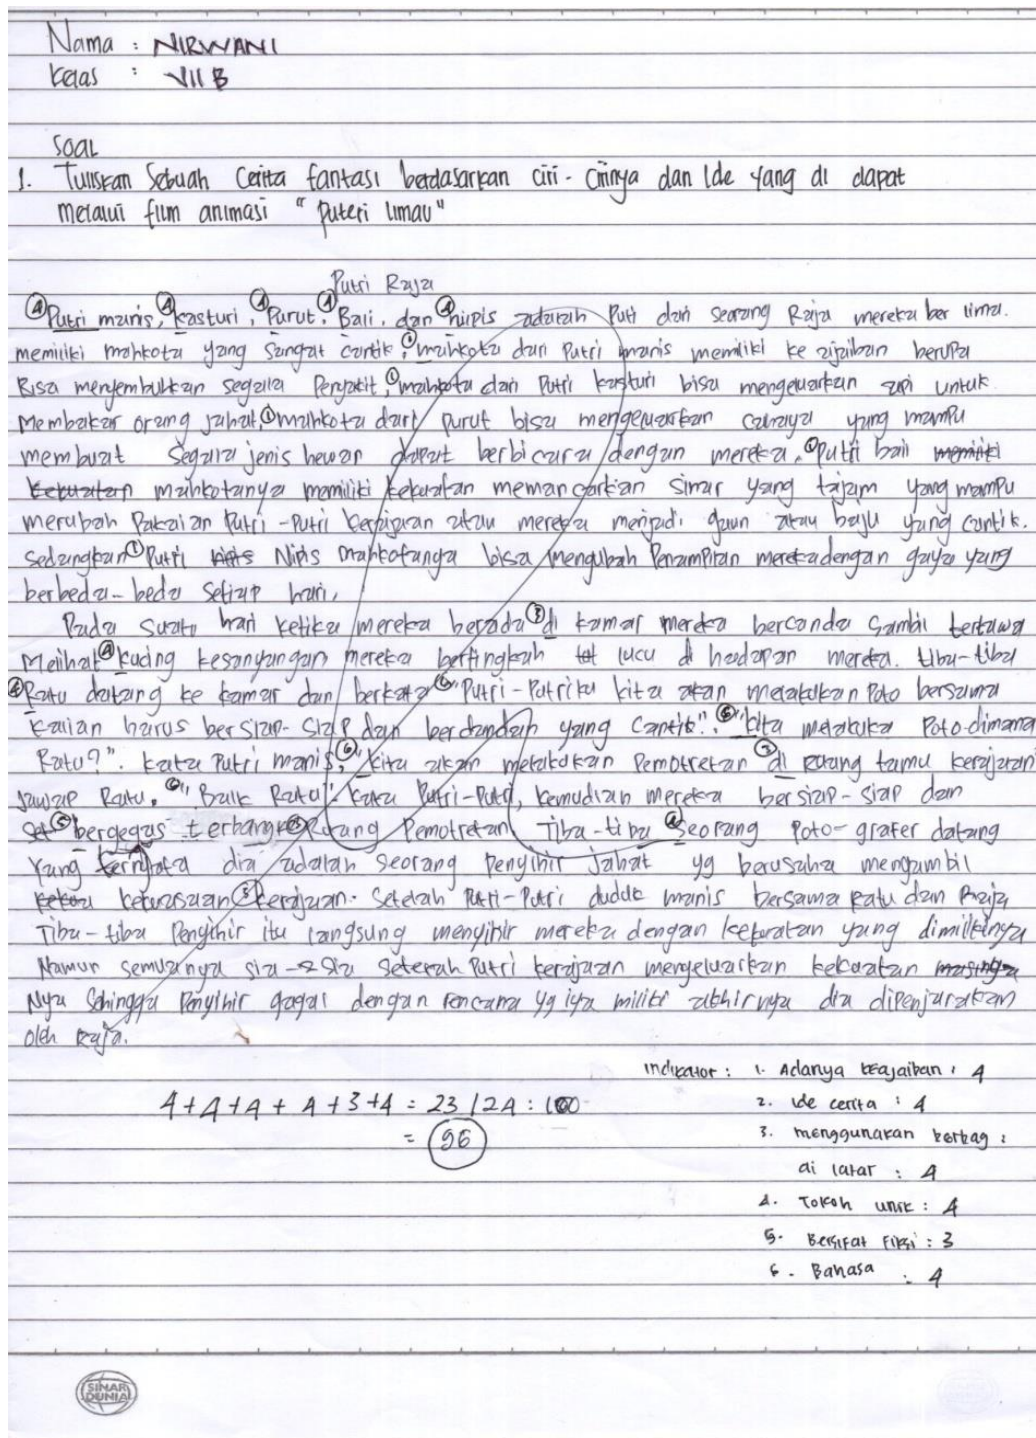 Nama : NIRWANI
Kelas : VII B
SOAL
1. Tuliskan Sebuah Cerita fantasi berdasarkan ciri-Cirinya dan Ide yang di dapat
melalui film animasi "Puteri limau"
Putri Raja
④Putri manis, ④kasturi, ④Purut, ④Bali, dan ④nipis adalah Putri dari seorang Raja mereka ber lima.
memiliki mahkota yang sangat cantik, ①mahkota dari Putri manis memiliki ke ajaiban berupa
Bisa menyembuhkan segala Penyakit, ①mahkota dari Putri kasturi bisa mengeluarkan api untuk
Membakar orang jahat, ①mahkota dari Purut bisa mengeluarkan cahaya yang mampu
membuat segala jenis hewan dapat berbicara dengan mereka, ①Putri bali memiliki
kekuatan mahkotanya memiliki kekuatan memancarkan sinar yang tajam yang mampu
merubah Pakaian Putri-Putri kerajaan atau mereka menjadi gaun atau baju yang cantik.
sedangkan ①Putri Nipis mahkotanya bisa mengubah Penampilan mereka dengan gaya yang
berbeda-beda setiap hari.
Pada suatu hari ketika mereka berada ③di kamar mereka bercanda sambil tertawa
Melihat ④kucing kesanyangan mereka bertingkah lucu di hadapan mereka. tiba-tiba
④Ratu datang ke kamar dan berkata ⑥"Putri-Putriku kita akan melakukan Poto bersama
kalian harus bersiap-siap dan berdandan yang cantik". ⑥"kita melakuka Poto dimana
Ratu?". kata Putri manis, ⑥"kita akan melakukan Pemotretan ③di ruang tamu kerajaan
Jawap Ratu. ⑥"Baik Ratu" kata Putri-Putri, kemudian mereka bersiap-siap dan
⑤bergegas terbang ke ③Ruang Pemotretan Tiba-tiba ④Seorang Poto-grafer datang
Yang ternyata dia adalah seorang Penyihir Jahat yg berusaha mengambil
kekuasaan ③kerajaan. Setelah Putri-Putri duduk manis bersama Ratu dan Raja
Tiba-tiba Penyihir itu langsung menyihir mereka dengan kekuatan yang dimilikinya
Namun semuanya sia-sia setelah Putri kerajaan mengeluarkan kekuatan masing
Nya Sehingga Penyihir gagal dengan rencana yg iya miliki akhirnya dia dipenjarakan
oleh Raja.
Indikator : 1. Adanya keajaiban : 4
4+4+4+4+3+4 = 23/24 : 100
= 96
2. Ide cerita : 4
3. menggunakan berbag :
ai latar : 4
4. Tokoh unik : 4
5. Bersifat Fiksi : 3
6. Bahasa : 4
SINAR
DUNIA